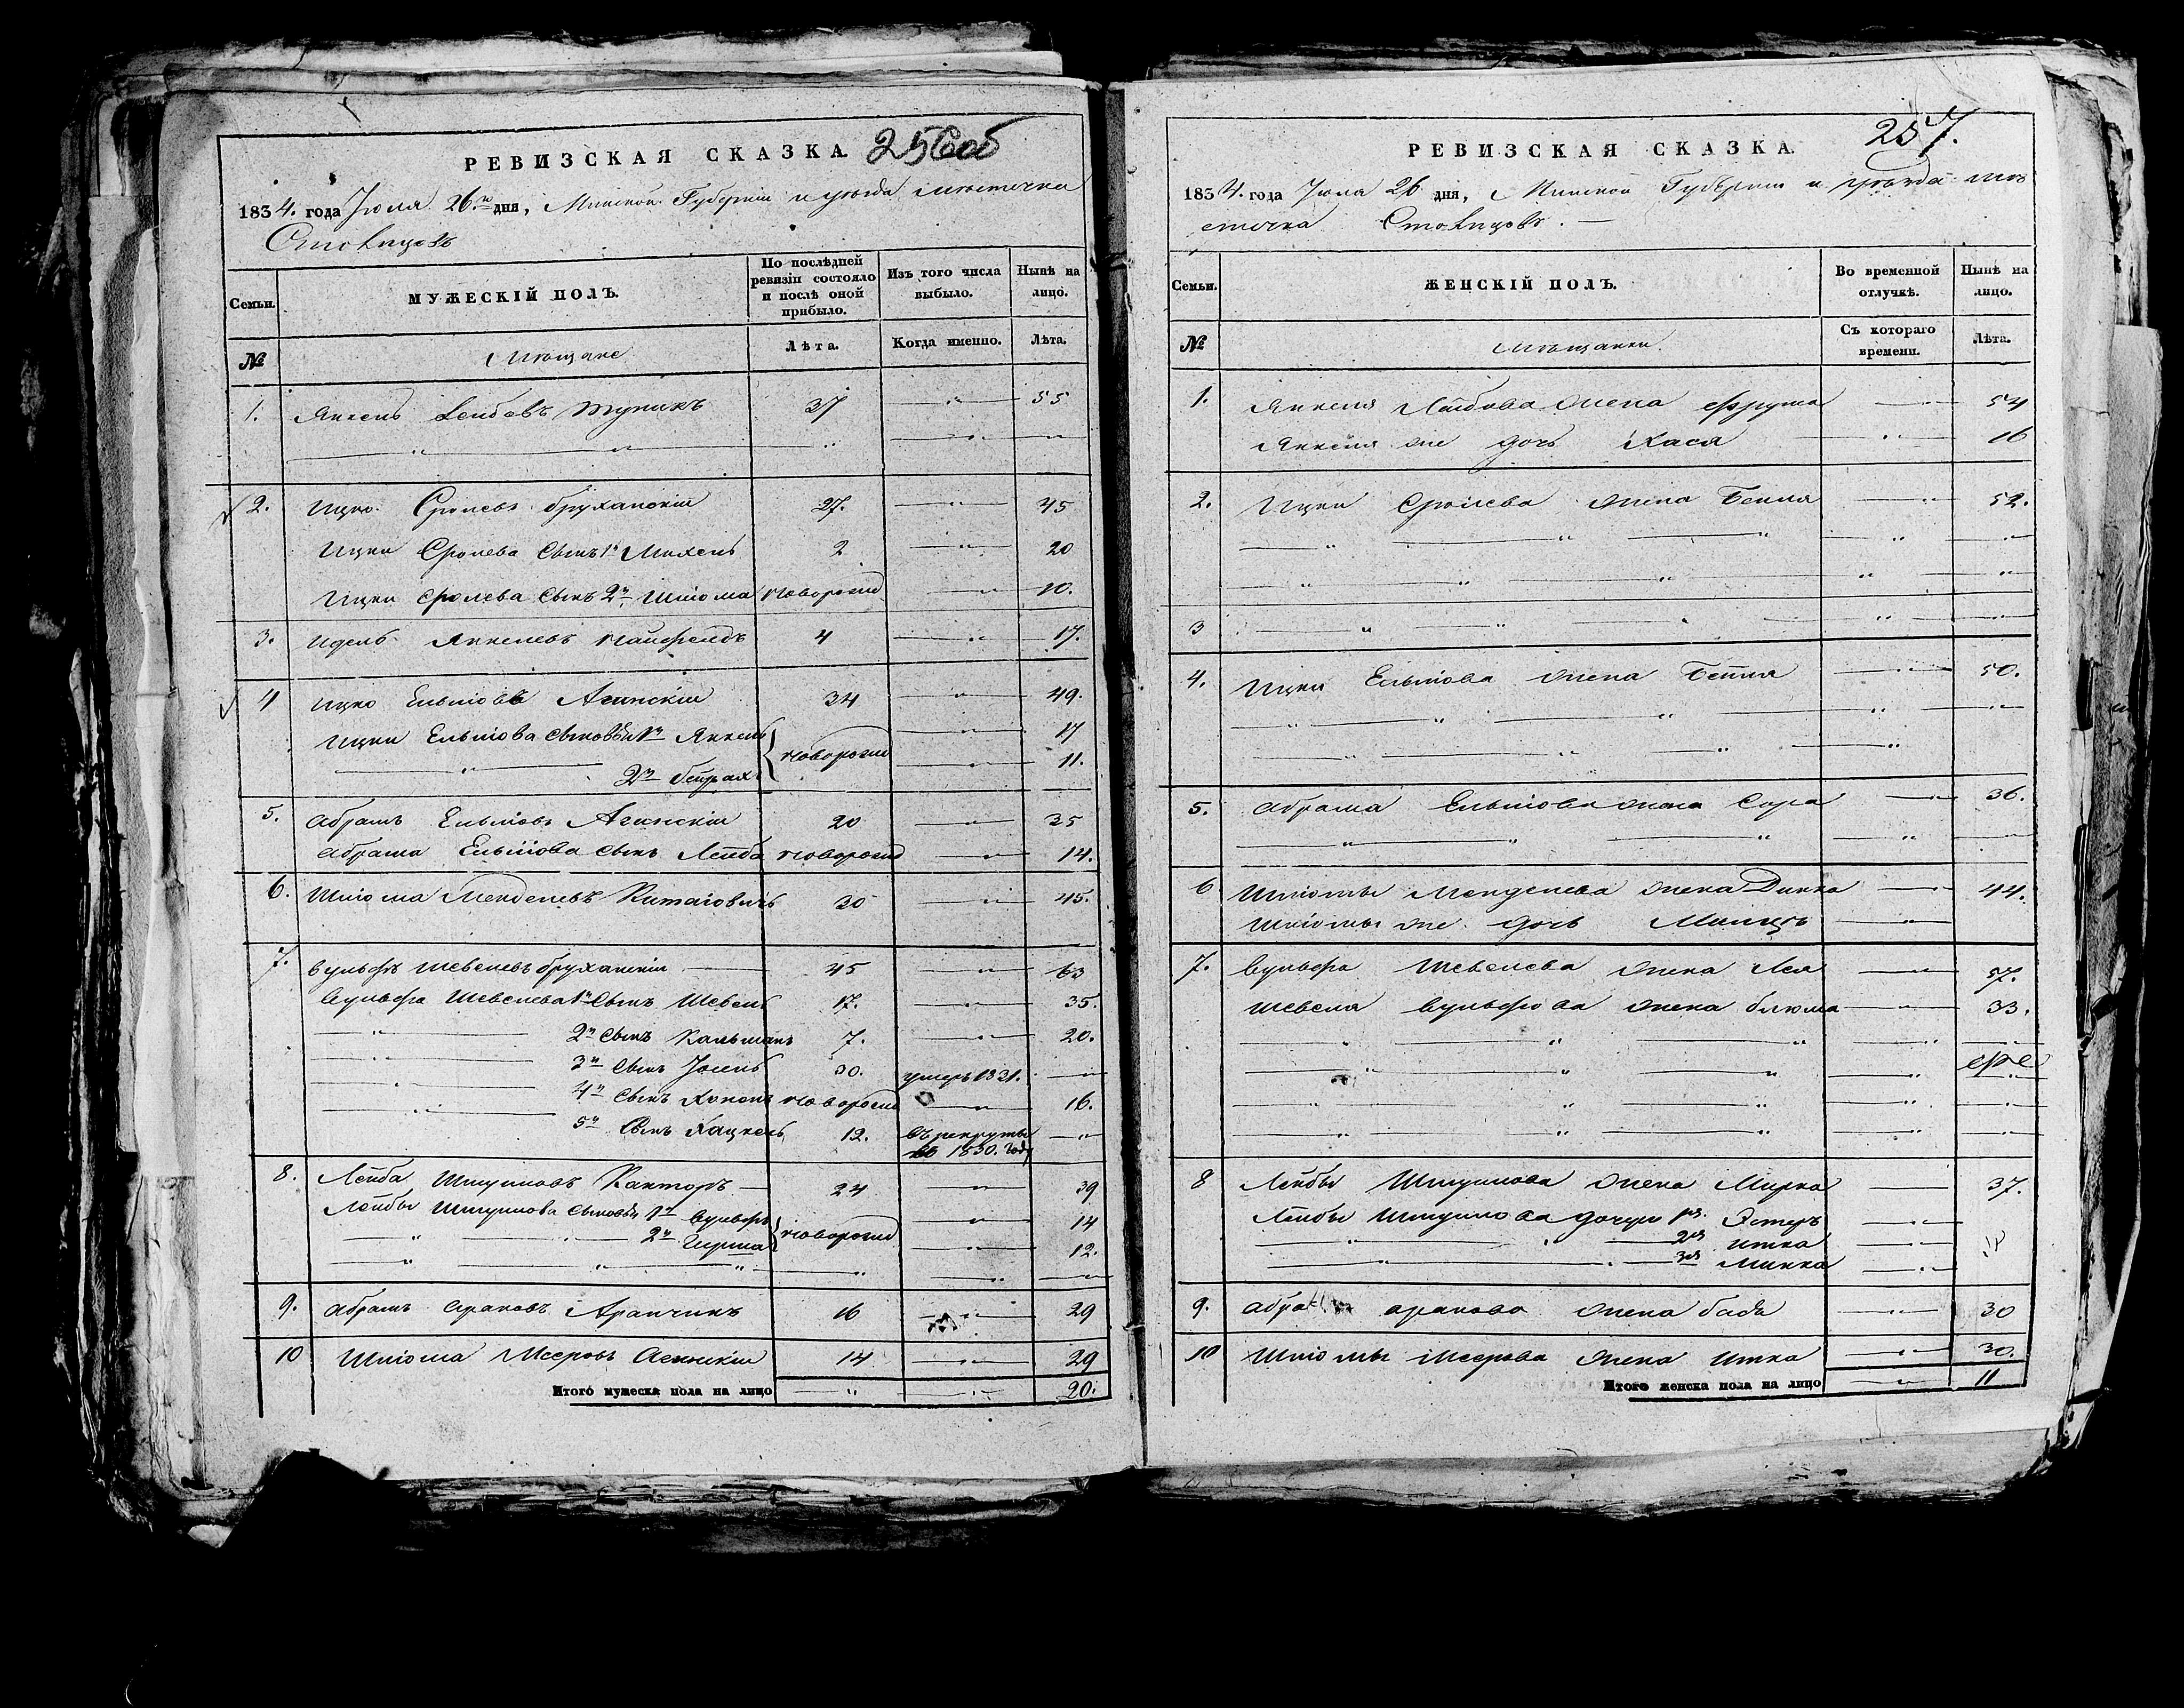 РЕВИЗСКАЯ СКАЗКА. 256об
1834. года Июля 26.го дня, Минской Губерніи и уезда местечка
Столпцовъ
Семьи.
МУЖЕСКІЙ ПОЛЪ.
По послѣдней ревизіи состояло и послѣ оной прибыло.
Изъ того числа выбыло.
Нынѣ на лицо.
№
Мещане
Лѣта.
Когда именно.
Лѣта.
1. Янкель Лейбовъ 37 55
2. Ицко Сролевъ Бруханскій 27. 45
Ицки Сролева сынъ 1й Михель 2 20
Ицки Сролева сынъ 2й Шліома новорожд 10.
3. Идель Янкелевъ 4 17.
4 Ицко Ельіовъ Агинскій 34 49.
Ицки Ельіова сыновья 1й Янкель новорожд 17
2й 11.
5. Абрамъ Ельіовъ Агинскій 20 35
Абрама Ельіова сынъ Лейба новорожд 14.
6. Шліома Менделевъ Китаіовичъ 30 45.
7. Вульфъ Шевелевъ Бруханскій 45 63
Вульфа Шевелева 1й сынъ Шевель 17. 35.
2й сынъ Кальманъ 7. 20.
3й сынъ Іосель 30. умеръ 1831.
4й сынъ новорожд 16.
5й сынъ Хацкель 12. въ рекруты
въ 1830. году
8. Лейба Шмуиловъ Канторъ 24 39
Лейбы Шмуилова сыновья 1й Вульфъ новорожд 14
2й Гирша 12.
9. Абрамъ Ароновъ Арончикъ 16 29
10 Шліома Мееровъ 14 29
Итого мужеска пола на лицо 20.
РЕВИЗСКАЯ СКАЗКА. 257.
1834. года Июля 26 дня, Минской Губерніи и уезда ме
стечка Столпцовъ.
Семьи.
ЖЕНСКІЙ ПОЛЪ.
Во временной отлучкѣ.
Нынѣ на лицо.
№
Мещанки.
Съ котораго времени.
Лѣта.
1. Янкеля Лейбова жена Фрума 54
Янкеля же дочь Хася 16
2. Ицки Сролева жена Бейля 52.
3
4. Ицки Ельіова жена Бейля 50.
5. Абрама Ельіова жена Сора 36.
6 Шліомы Менделева жена Динка 44.
Шліомы же дочь
7. Вульфа Шевелева жена Лея 57.
Шевеля Вульфова жена Блюма 33.
8 Лейбы Шмуилова жена Мирка 37.
Лейбы Шмуилова дочери 1я Эстеръ
2я Итка
3я Минка
9. Аронова жена 30
10 Шліомы Меерова жена Итка 30.
Итого женска пола на лицо 11